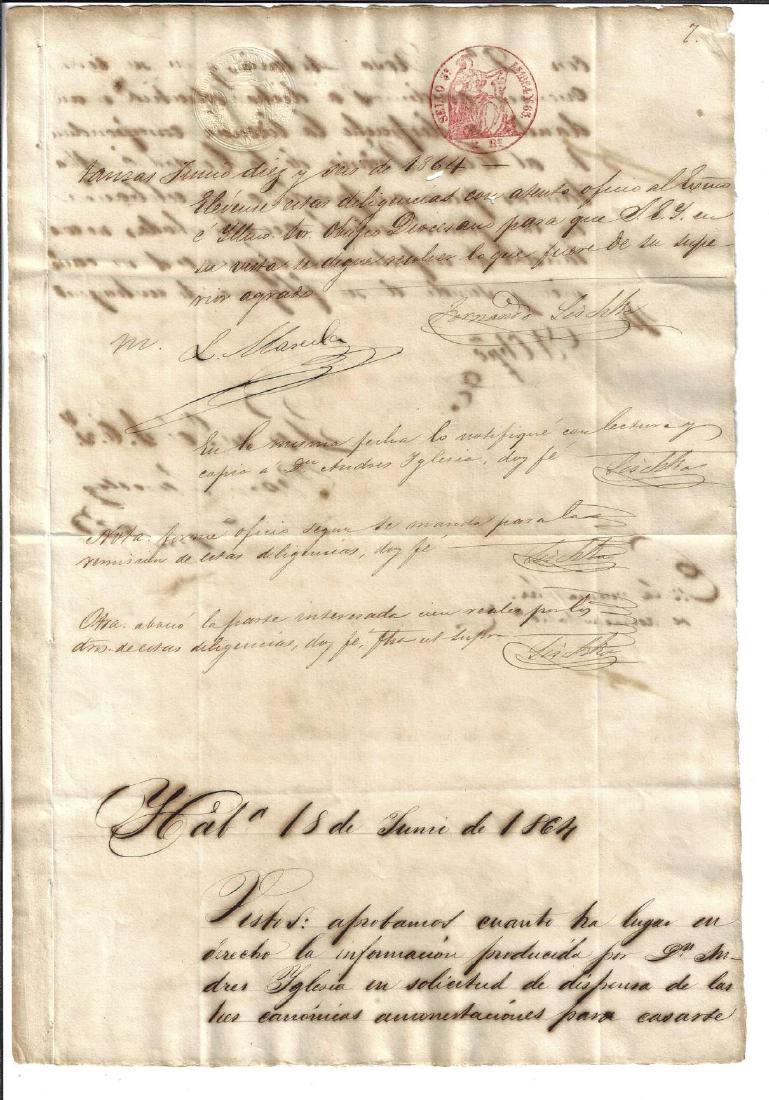 7.
SELLO 3º
R. Bs
tanzas Junio diez y seis de 1864
Elévense estas diligencias con atento oficio al Excmo
é Illmo. Sor. Obispo Diocesano para que S.E.Y. en
su vista se digne resolver lo que fuere de su supe-
rior agrado
Fernando
M. L.
En la misma fecha lo notifiqué con lectura y
copia a Dn Andres Yglesia, doy fé
Nota. formé oficio segun se manda para la
remision de estas diligencias, doy fé
Otra. abonó la parte interesada cien reales por los
dros. de estas diligencias, doy fé, fha ut supra
Haba 18 de Juni de 1864
Vistos: aprobamos cuanto ha lugar en
derecho la información producida por Dn An-
dres Yglesia en solicitud de dispensa de las
tres canónicas amonestaciónes para casarse